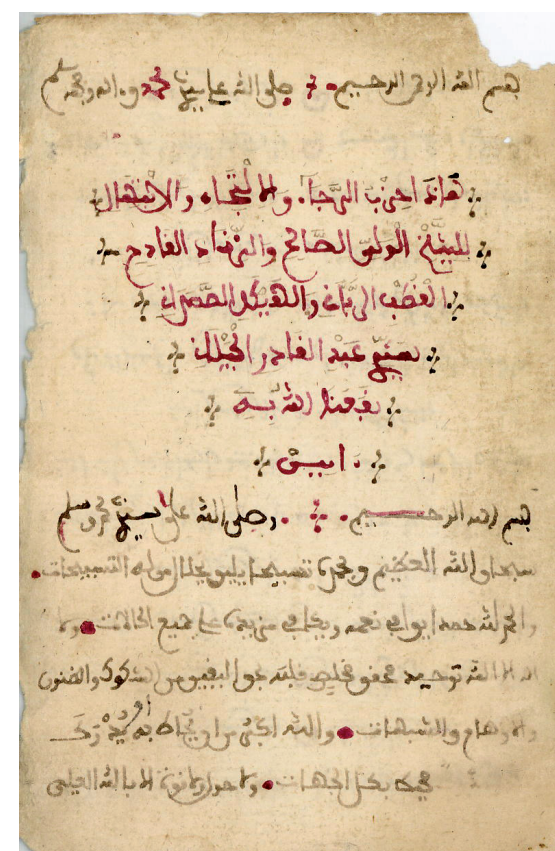 بسم الله الرحمن الرحيم صلى الله على سيدنا محمد وءاله وصحبه وسلم
هاذا حزب الرجا. والالتجاء والابتهال
للشيخ الولي الصالح والزناد القادح
القطب الرباني والهيكل الصمداني
سيدي عبد القادر الجيلاني
نفعنا الله به
ءاميــن
بسم الله الرحمـــن الرحيم وصلى الله على سيدنا محمد وسلم
سبحان الله العظيم وبحمده تسبيحا يليق بجلال من له التسبيحات
والحمد لله حمدا يوافي نعمه ويكافي مزيده على جميع الحالات ولا
اله الا الله توحيد محقق مخلص قلبه بحق اليقين من الشكوك والظنون
والاوهام والشبهات والله اكبر من ان يحاط به او يدرك
بكل الجهات ولا حول ولا قوة الا بالله العلي